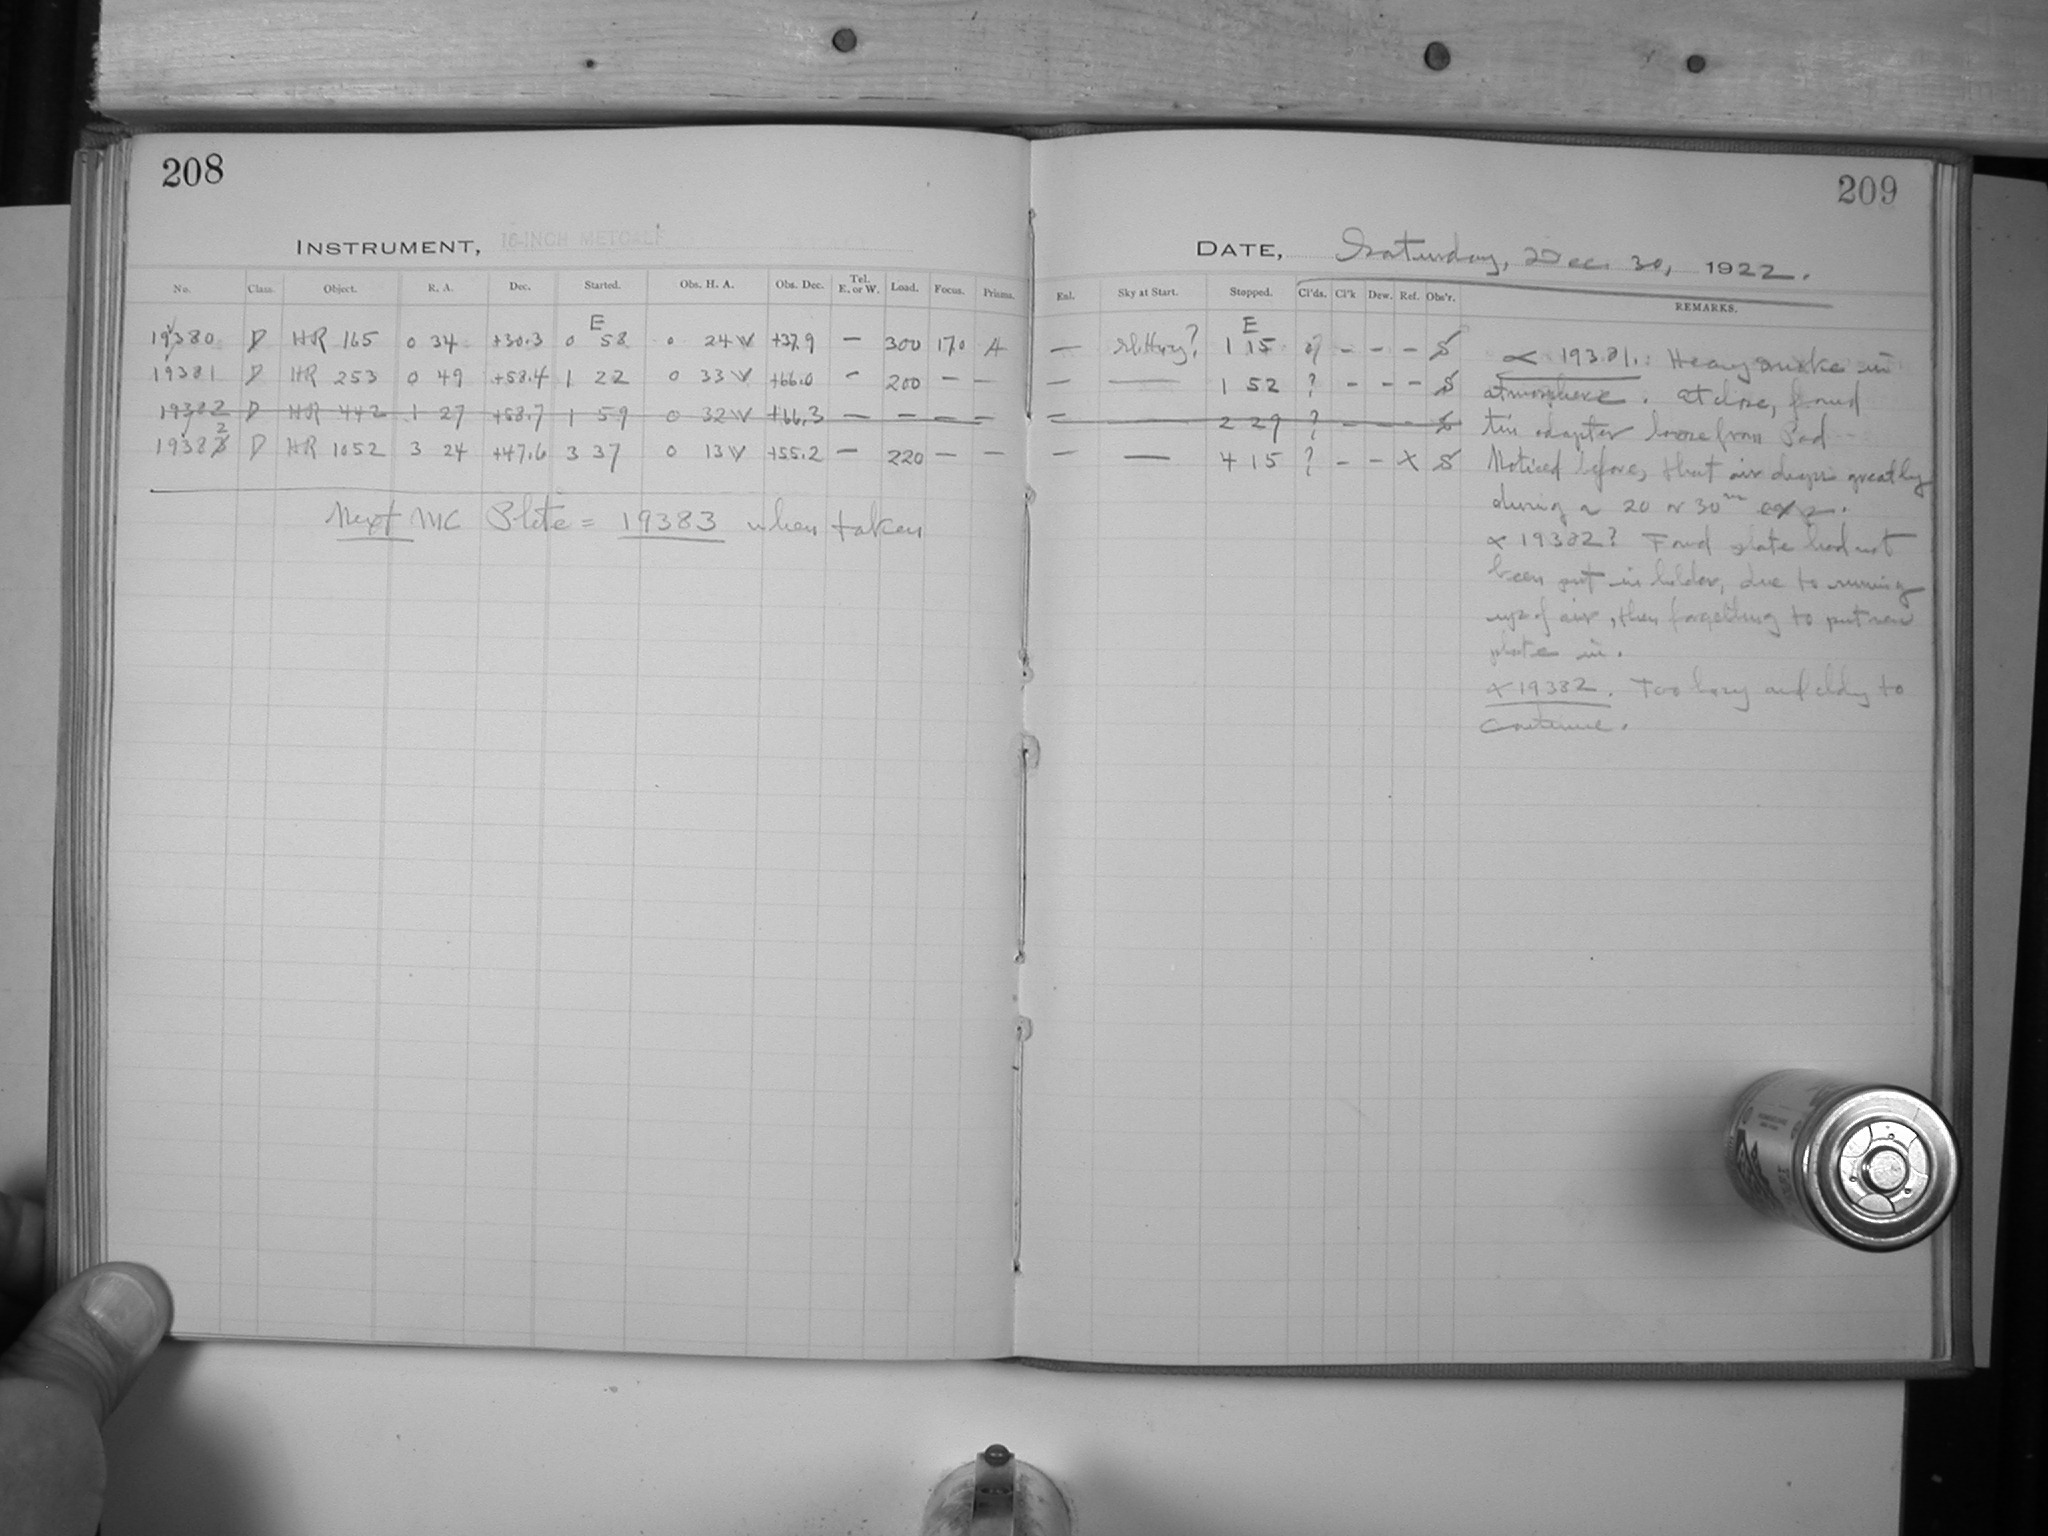 208
209
INSTRUMENT, 16-INCH METCALF
DATE, Saturday, Dec. 30, 1922.
No. Class. Object. R. A. Dec. Started. Obs. H. A. Obs. Dec. Tel. E. or W. Load. Focus. Prisms. Enl. Sky at Start. Stopped. Cl'ds. Cl'k Dew. Ref. Obs'r. REMARKS.
E E
19380 D HR 165 0 34 +30.3 0 58 0 24 W +37.9 — 300 17.0 A — Sl. Hazy? 1 15 - - - S
19381 D HR 253 0 49 +58.4 1 22 0 33 W +66.0 - 200 — — — — 1 52 ? - - - S
19382 D HR 442 1 27 +58.7 1 59 0 32 W +66.3 — — — — — 2 29 ? - - - S
19382 D HR 1052 3 24 +47.6 3 37 0 13 W +55.2 — 220 — — — — 4 15 ? - - X S
Next MC Plate = 19383 when taken
∝ 19381.: Heavy smoke in
atmosphere. At close, found
tin adapter loose from Pad
Noticed before, that air drops greatly
during a 20 or 30m exp.
∝ 19382? Found plate had not
been put in holder, due to running
up of air, then forgetting to put new
plate in.
∝ 19382. Too hazy and cldy to
continue.